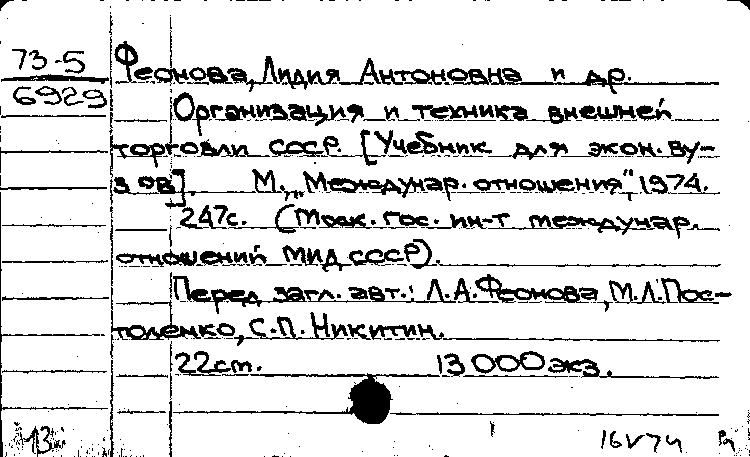 73-5
6929
Феонова, Лидия Антоновна и др.
Организация и техника внешней
торговли СССР. [Учебник для экон. ву-
зов]. М., „Междунар. отношения", 1974.
247с. (Моск. гос. ин-т междунар.
отношений МИД СССР).
Перед загл. авт.: Л.А. Феонова, М.Л. Пос-
толенко, С.П. Никитин.
22см. 13000 экз.
16 V 74